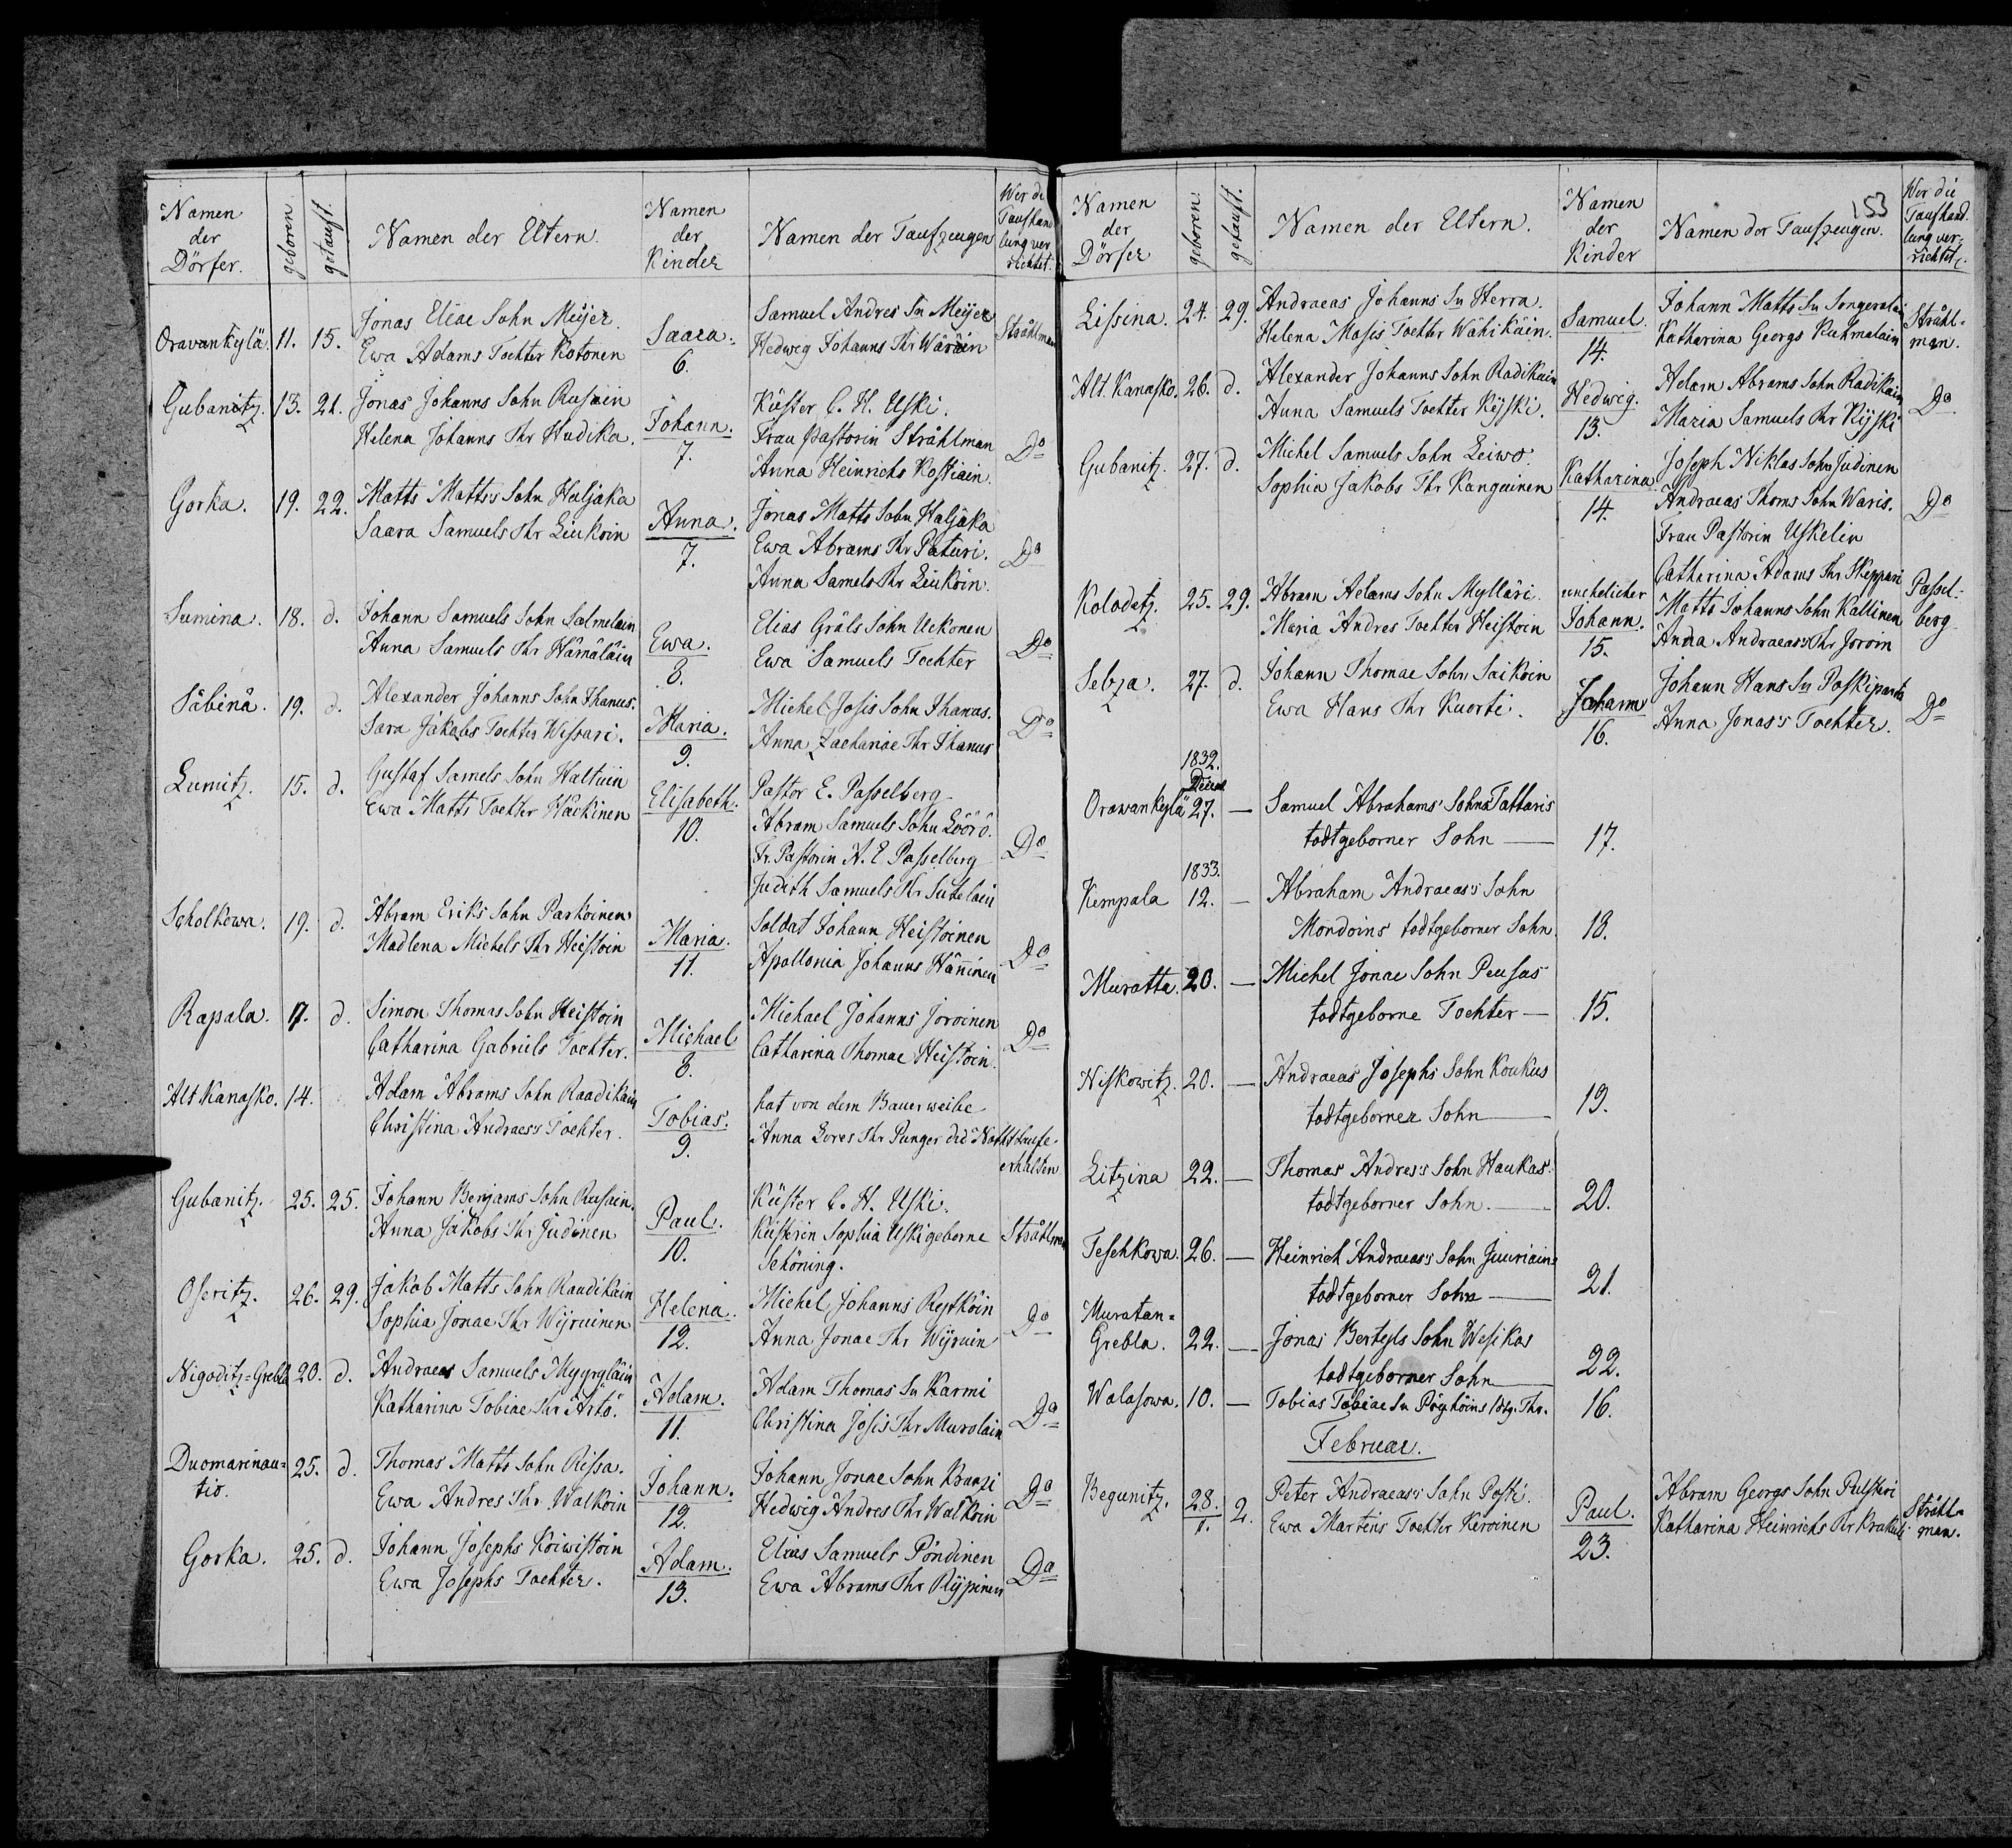 Namen der Dörfer. geboren getauft. Namen der Eltern. Namen der Kinder Namen der Taufzeugen Wer die Taufhandlung verrichtet.
Oravankylä. 11. 15. Jonas Eliae Sohn Meijer.
Ewa Adams Tochter Kotonen
Saara.
6.
Samuel Andres Sn Meijer
Hedweg Johanns Thr Wäräin
Stråhlman
Gubanitz. 13. 21. Jonas Johanns Sohn Rusain
Helena Johanns Thr Hudika.
Johann.
7.
Küster C. H. Uski.
Frau Pastorin Stråhlman
Anna Heinrichs Kostiain.
Do
Gorka. 19. 22. Matts Matts's Sohn Haljaka
Saara Samuels Thr Liukoin
Anna.
7.
Jonas Matts Sohn Haljaka
Ewa Abrams Thr Paturi.
Anna Samels Thr Liukoin.
Do
Sumina. 18. d. Johann Samuels Sohn Salmelain
Anna Samuels Thr Hämäläin
Ewa.
8.
Elias Gräls Sohn Uckonen
Ewa Samuels Tochter
Do
Säbinä. 19. d. Alexander Johanns Sohn Thanus.
Sara Jakobs Tochter Wissari.
Maria.
9.
Michel Josis Sohn Thanus.
Anna Zachariae Thr Thanus
Do
Lumitz. 15. d. Gustaf Samels Sohn Haltuin
Ewa Matts Tochter Häckinen
Elisabeth.
10.
Pastor E. Passelberg
Abram Samuels Sohn Löörö.
Fr. Pastorin A. E Passelberg
Judith Samuels Thr Sutelain
Do
Scholkowa. 19. d. Abram Eriks Sohn Parkoinen
Madlena Michels Thr Heistoin
Maria.
11.
Soldat Johann Heistoinen
Apollonia Johanns Hänninen
Do
Rapala. 17. d. Simon Thomas Sohn Heistoin
Catharina Gabriels Tochter.
Michael
8.
Michael Johanns Joroinen
Catharina Thomae Heistoin.
Do
Alt Kanasko. 14. Adam Abrams Sohn Raadikäin
Christina Andraes's Tochter.
Tobias.
9.
hat von dem Bauerweibe
Anna Lores Thr Punger did Nothtaufe
erhalten
Gubanitz. 25. 25. Johann Benjams Sohn Rusain.
Anna Jakobs Thr Judinen
Paul.
10.
Küster C. H. Uski.
Küsterin Sophia Uski geborne
Schöning.
Stråhlman
Oseritz. 26. 29. Jakob Matts Sohn Raudikain
Sophia Jonae Thr Wijruinen
Helena.
12.
Michel Johanns Reptköin
Anna Jonae Thr Wijruin
Do
Nigoditz-Grebla 20. d. Andraeas Samuels Myyryläin
Katharina Tobiae Thr Ärtö.
Adam.
11.
Adam Thomas Sn Karmi
Christina Josis Thr Murolain
Do
Duomarinau-
tio.
25. d. Thomas Matts Sohn Rissa.
Ewa Andres Thr Walkoin
Johann.
12.
Johann Jonae Sohn Kraazi
Hedwig Andres Thr Walkoin
Do
Gorka. 25. d. Johann Josephs Koiwistoin
Ewa Josephs Tochter.
Adam.
13.
Elias Samuels Pöndinen
Ewa Abrams Thr Rijpinen
Do
153
Namen der Dörfer geboren. getauft. Namen der Eltern. Namen der Kinder Namen der Taufzeugen. Wer die Taufhandlung verrichtet.
Lissina. 24. 29. Andraeas Johanns Sn Herra.
Helena Mosis Tochter Wahikäin.
Samuel.
14.
Johann Matts Sn Songeralain
Katharina Georgs Kuhmalain
Stråhl-
man.
Alt. Kanasko. 26. d. Alexander Johanns Sohn Radikain
Anna Samuels Tochter Kijski.
Hedwig.
13.
Adam Abrams Sohn Radikain
Maria Samuels Thr Kijski
Do
Gubanitz. 27. d. Michel Samuels Sohn Leiwo.
Sophia Jakobs Thr Kanguinen
Katharina
14.
Joseph Niklas Sohn Judinen
Andraeas Thoms Sohn Waris.
Frau Pastorin Uskelin
Catharina Adams Thr Skeppari
Do
Kolodetz. 25. 29. Abram Adams Sohn Mylläri
Maria Andres Tochter Heistoin
unehelicher
Johann.
15.
Matts Johanns Sohn Kallinen
Anna Andraeas's Thr Joroin
Passel-
berg
Selza. 27. d. Johann Thomae Sohn Saikoin
Ewa Hans Thr Kuorti.
Johann
16.
Johann Hans Sn Paskiparta
Anna Jonas's Tochter.
Do
1832.
Orawankylä 27. — Samuel Abrahams Sohns Tattaris
todtgeborner Sohn — 17.
1833.
Kempala 12. — Abraham Andraeas's Sohn
Mondoins todtgeborner Sohn. 18.
Muratta. 20. — Michel Jonae Sohn Peusas
todtgeborne Tochter — 15.
Niskowitz. 20. — Andraeas Josephs Sohn Koukus
todtgeborner Sohn — 19.
Litzina 22. — Thomas Andres's Sohn Haukas.
todtgeborner Sohn. — 20.
Teschkowa. 26. — Heinrich Andraeas's Sohn Juuriains
todtgeborner Sohn — 21.
Muratan-
Grebla. 22. — Jonas Bertyls Sohn Wesikas
todtgeborner Sohn — 22.
Walasowa. 10. — Tobias Tobiae Sn Pöyhöins tdtg. Thr. 16.
Februar.
Begunitz. 28./1. 2. Peter Andraeas's Sohn Posti.
Ewa Martins Tochter Keroinen
Paul.
23.
Abram Georgs Sohn Pulskeri
Katharina Heinrichs Thr Krakuli
Stråhl-
man.